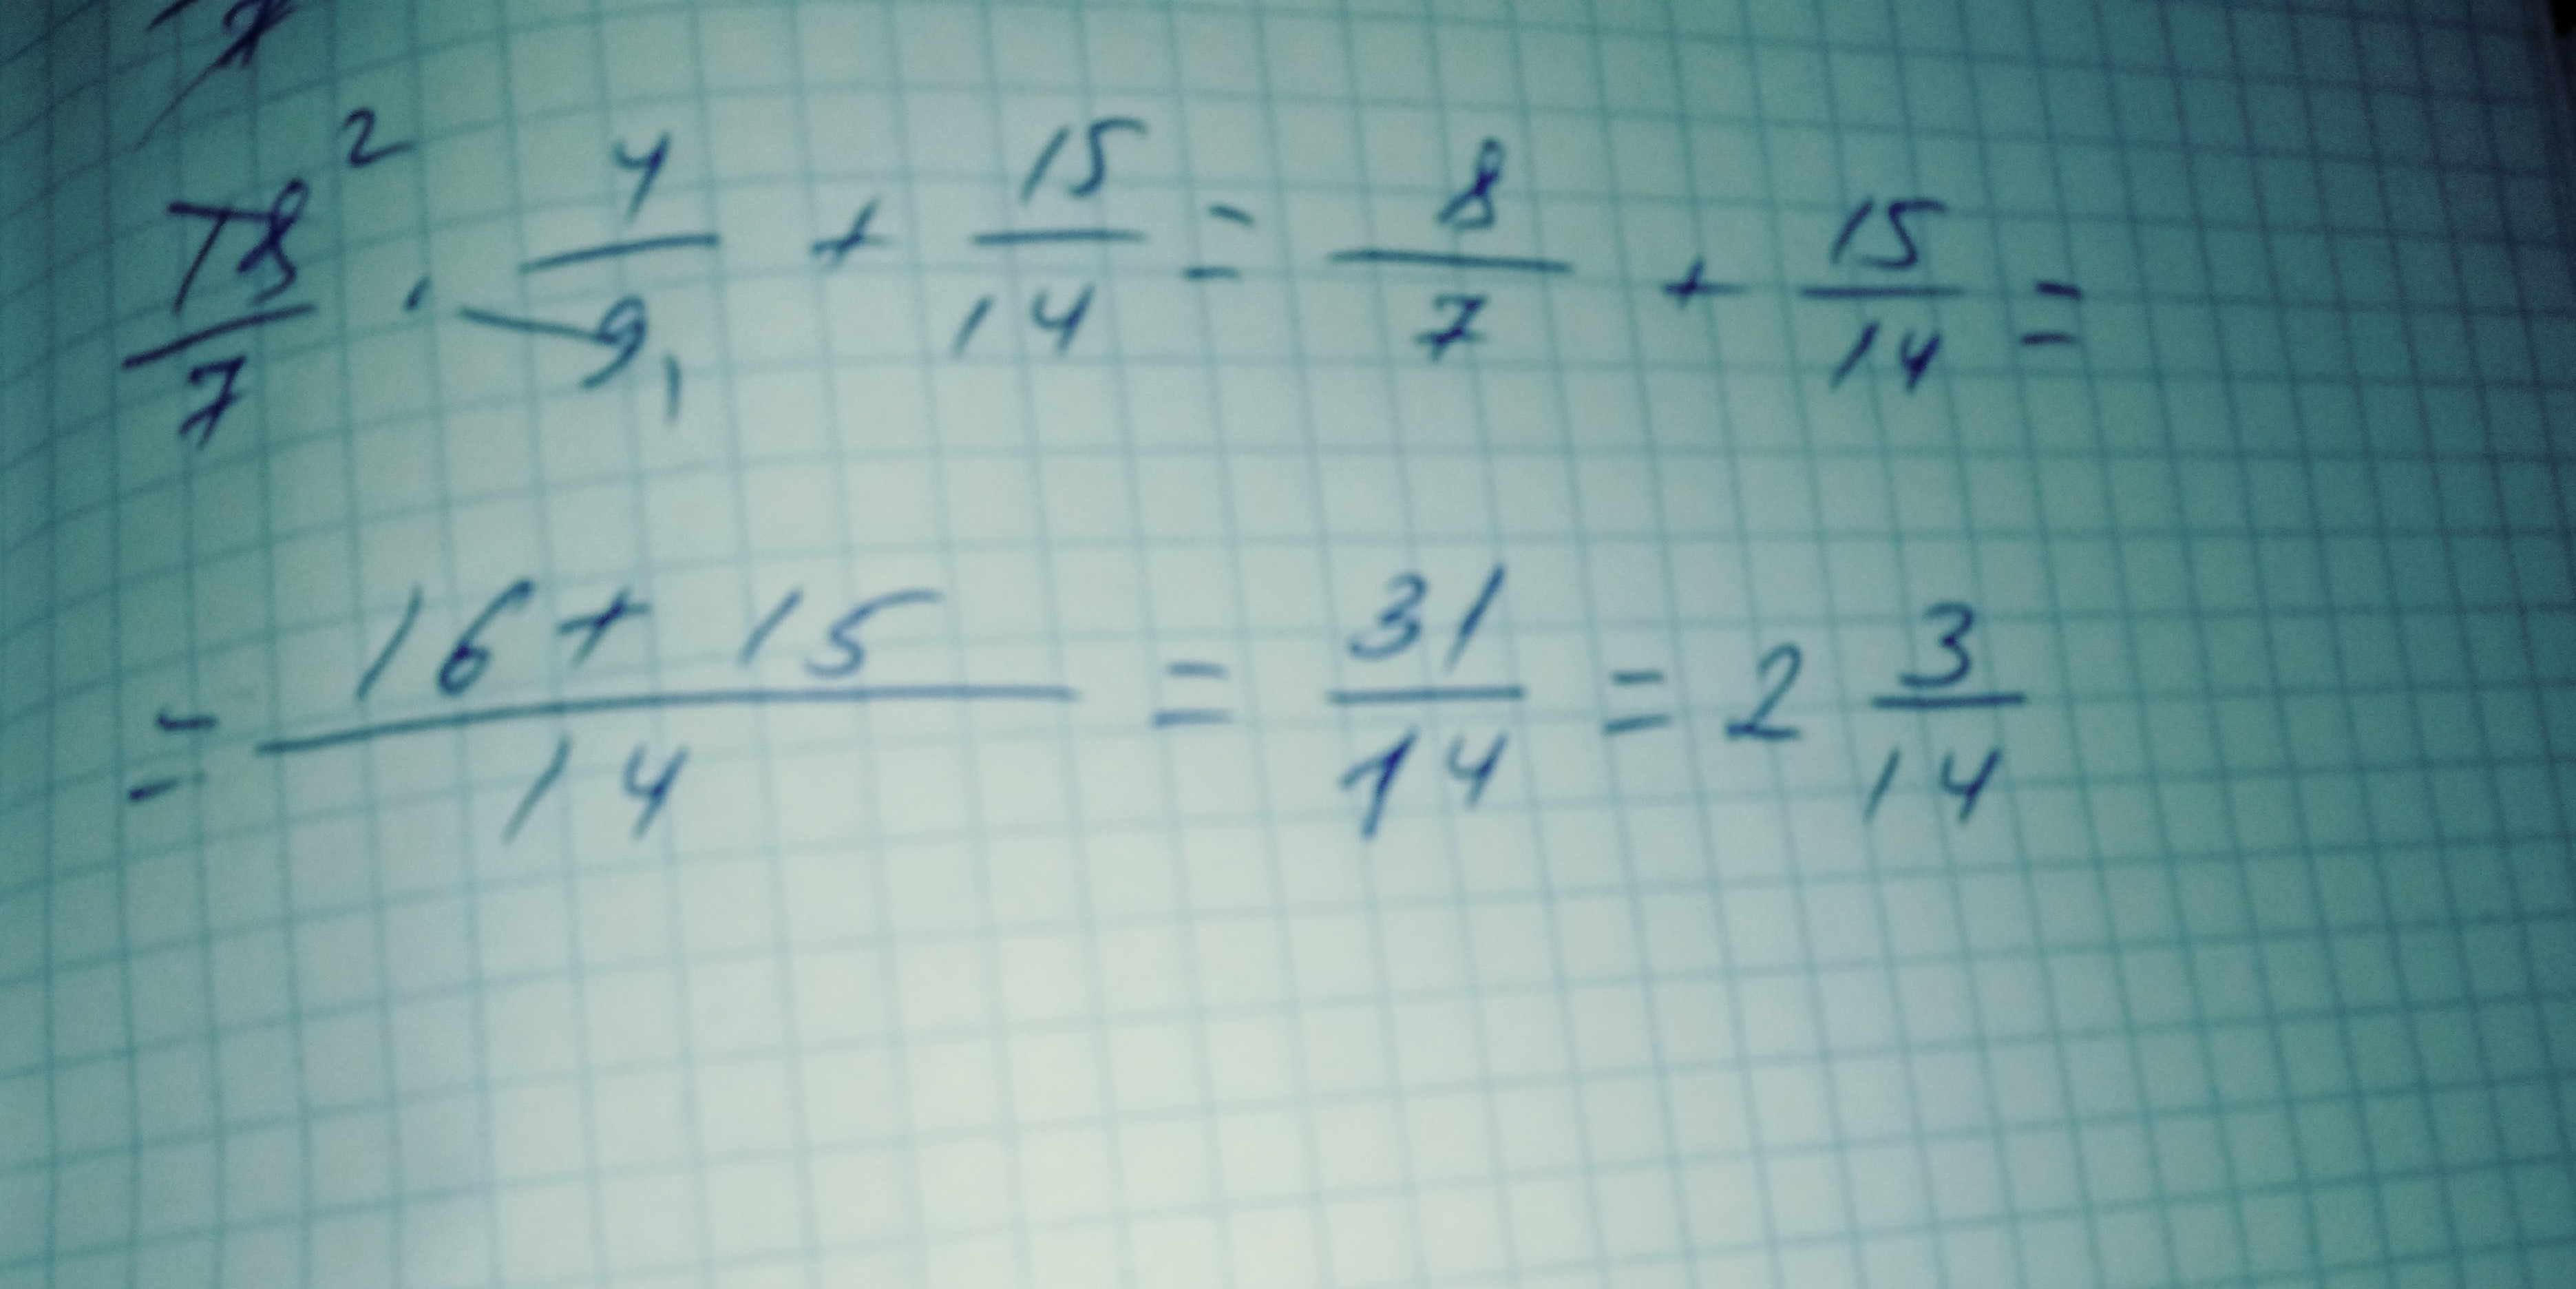 18/7 ² · 4/9 ₁ + 15/14 = 8/7 + 15/14 =
= (16 + 15)/14 = 31/14 = 2 3/14